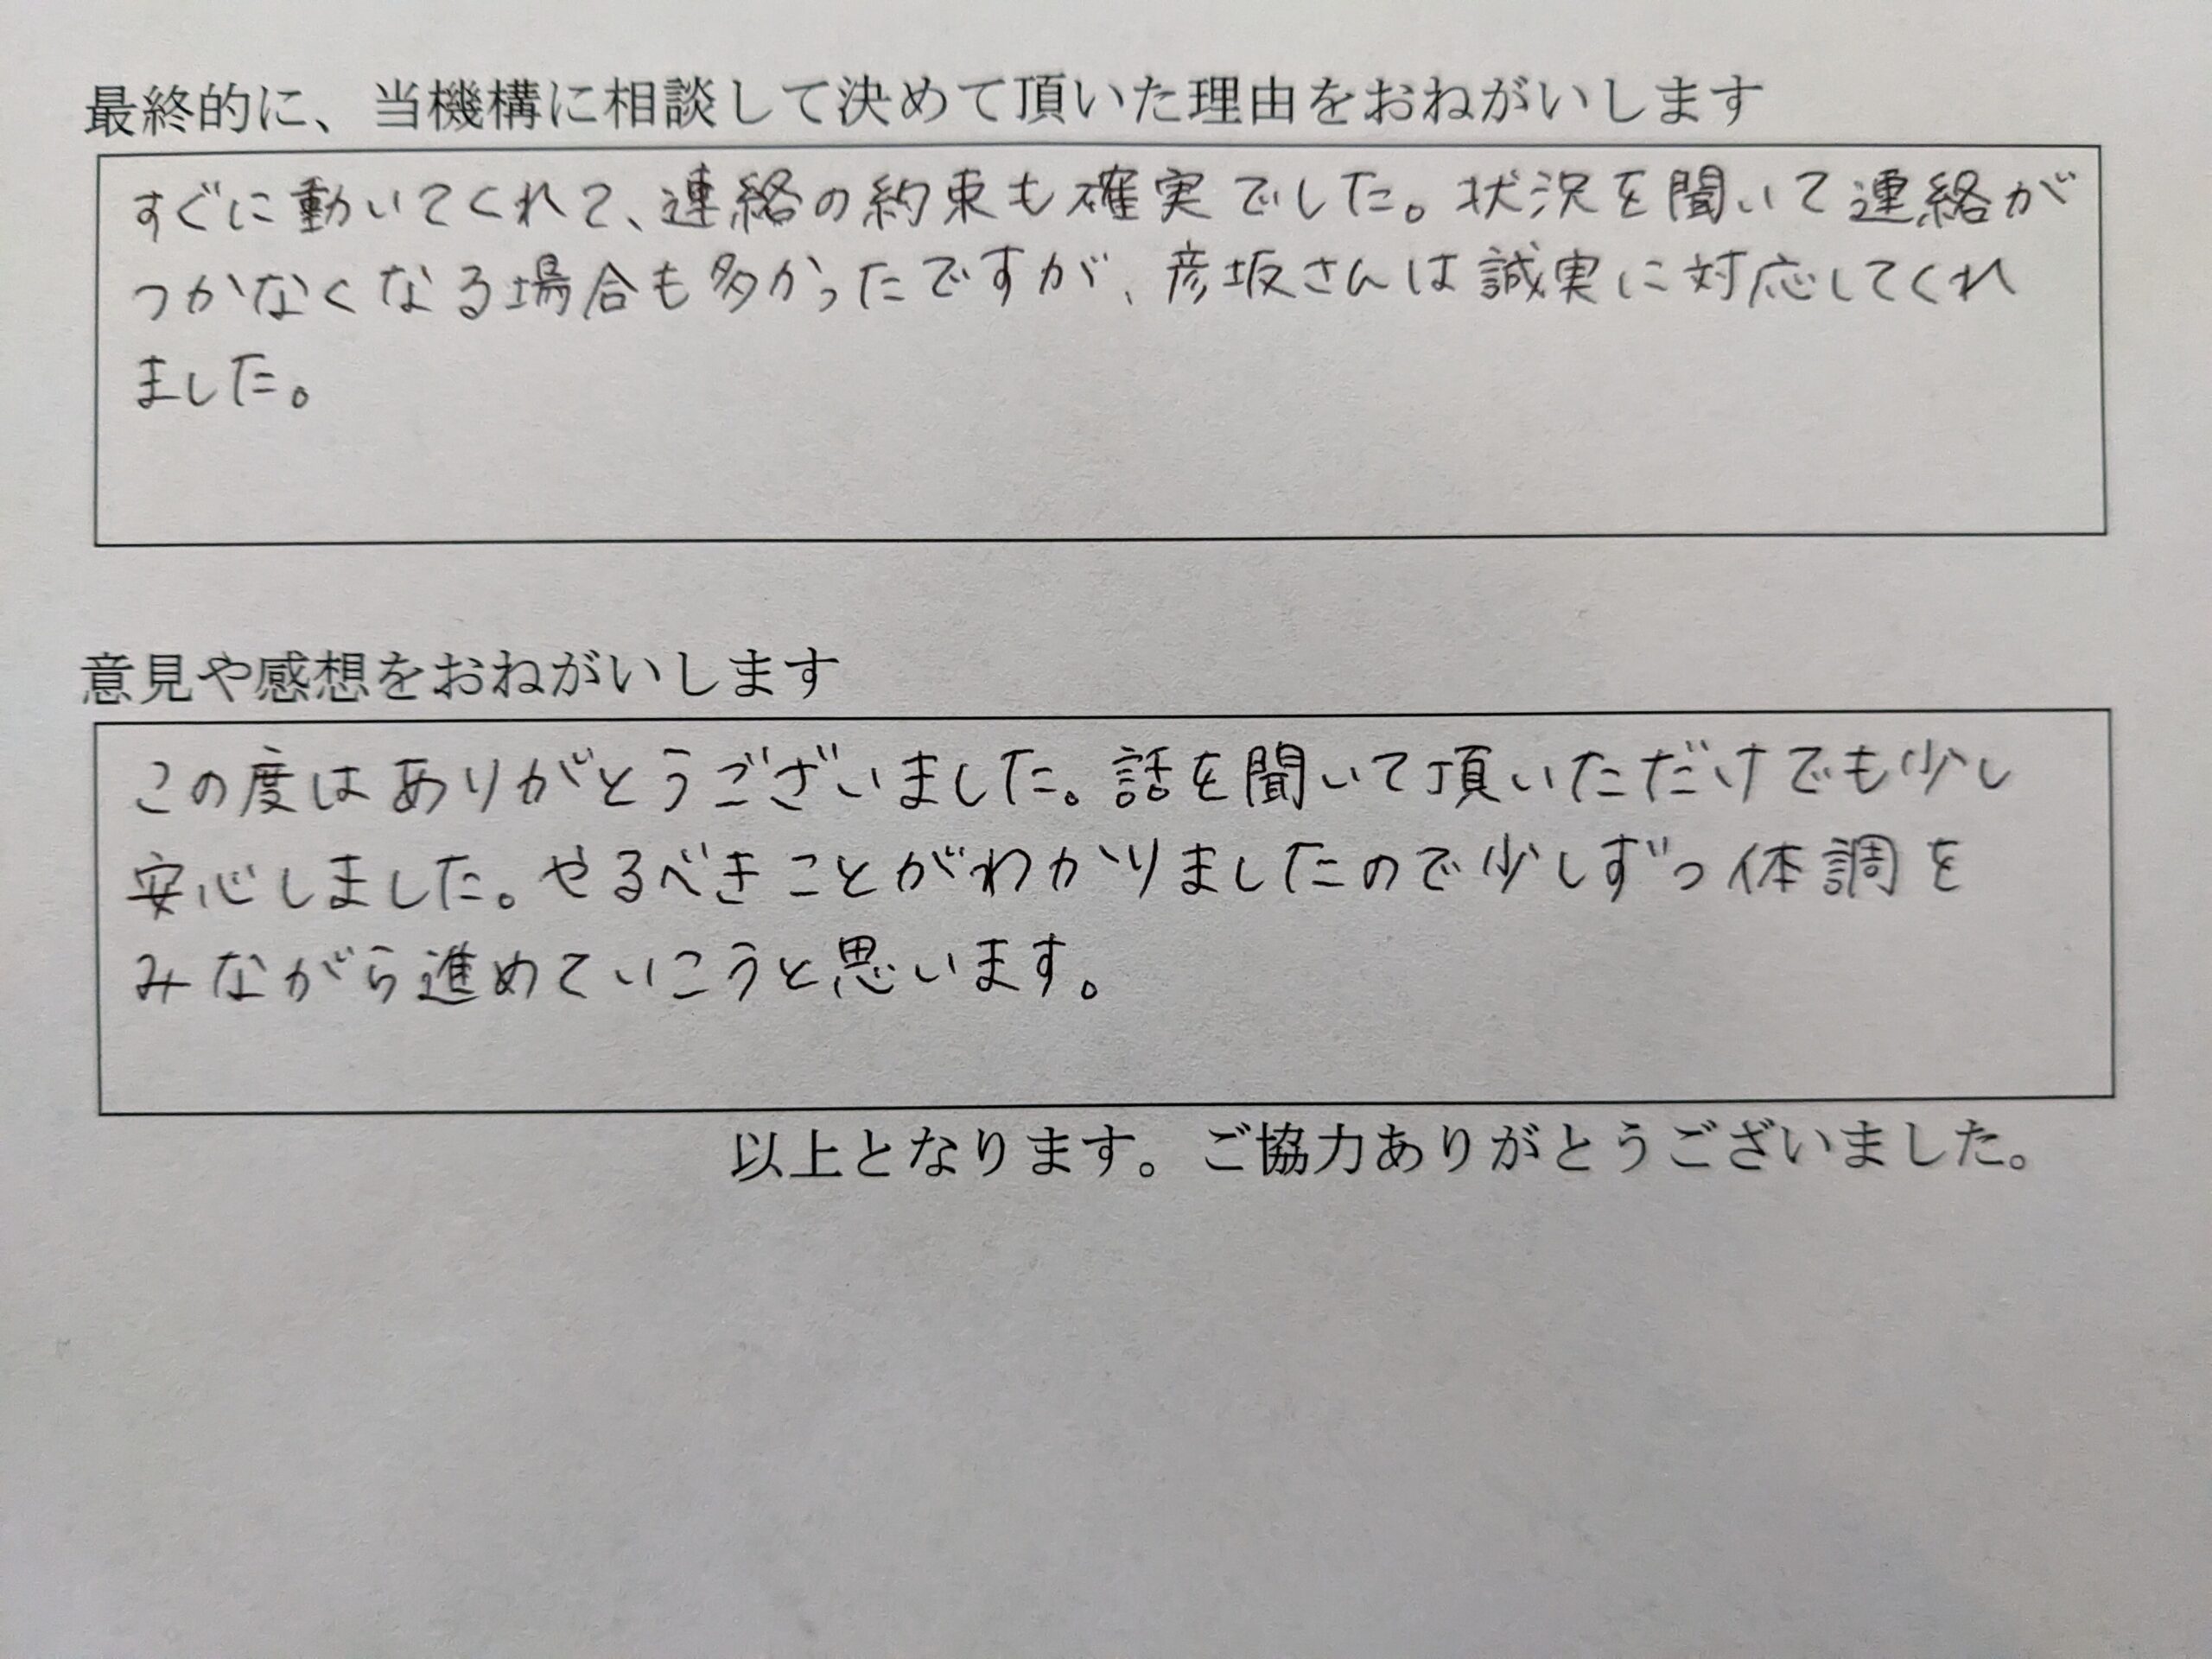 最終的に、当機構に相談して決めて頂いた理由をおねがいします
すぐに動いてくれて、連絡の約束も確実でした。状況を聞いて連絡が
つかなくなる場合も多かったですが、彦坂さんは誠実に対応してくれ
ました。
意見や感想をおねがいします
この度はありがとうございました。話を聞いて頂いただけでも少し
安心しました。やるべきことがわかりましたので少しずつ体調を
みながら進めていこうと思います。
以上となります。ご協力ありがとうございました。